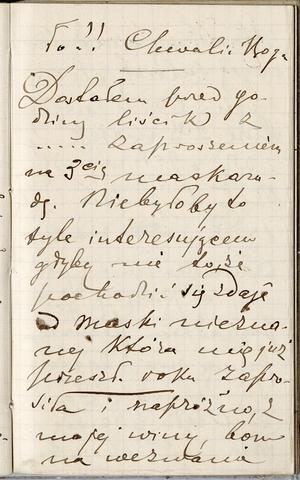 To!! Chwalić Boga
Dostałem przed go-
dziny liścik z
..... zaproszeniem
na 3cią maskara-
dę. Niebyłoby to
tyle interesującem
gdyby nie to, że
pochodzić się zdaje
od maski niezna-
nej która mię już
przeszł. roku zapro-
siła i napróżno, z
mojej winy, bom
na wezwania